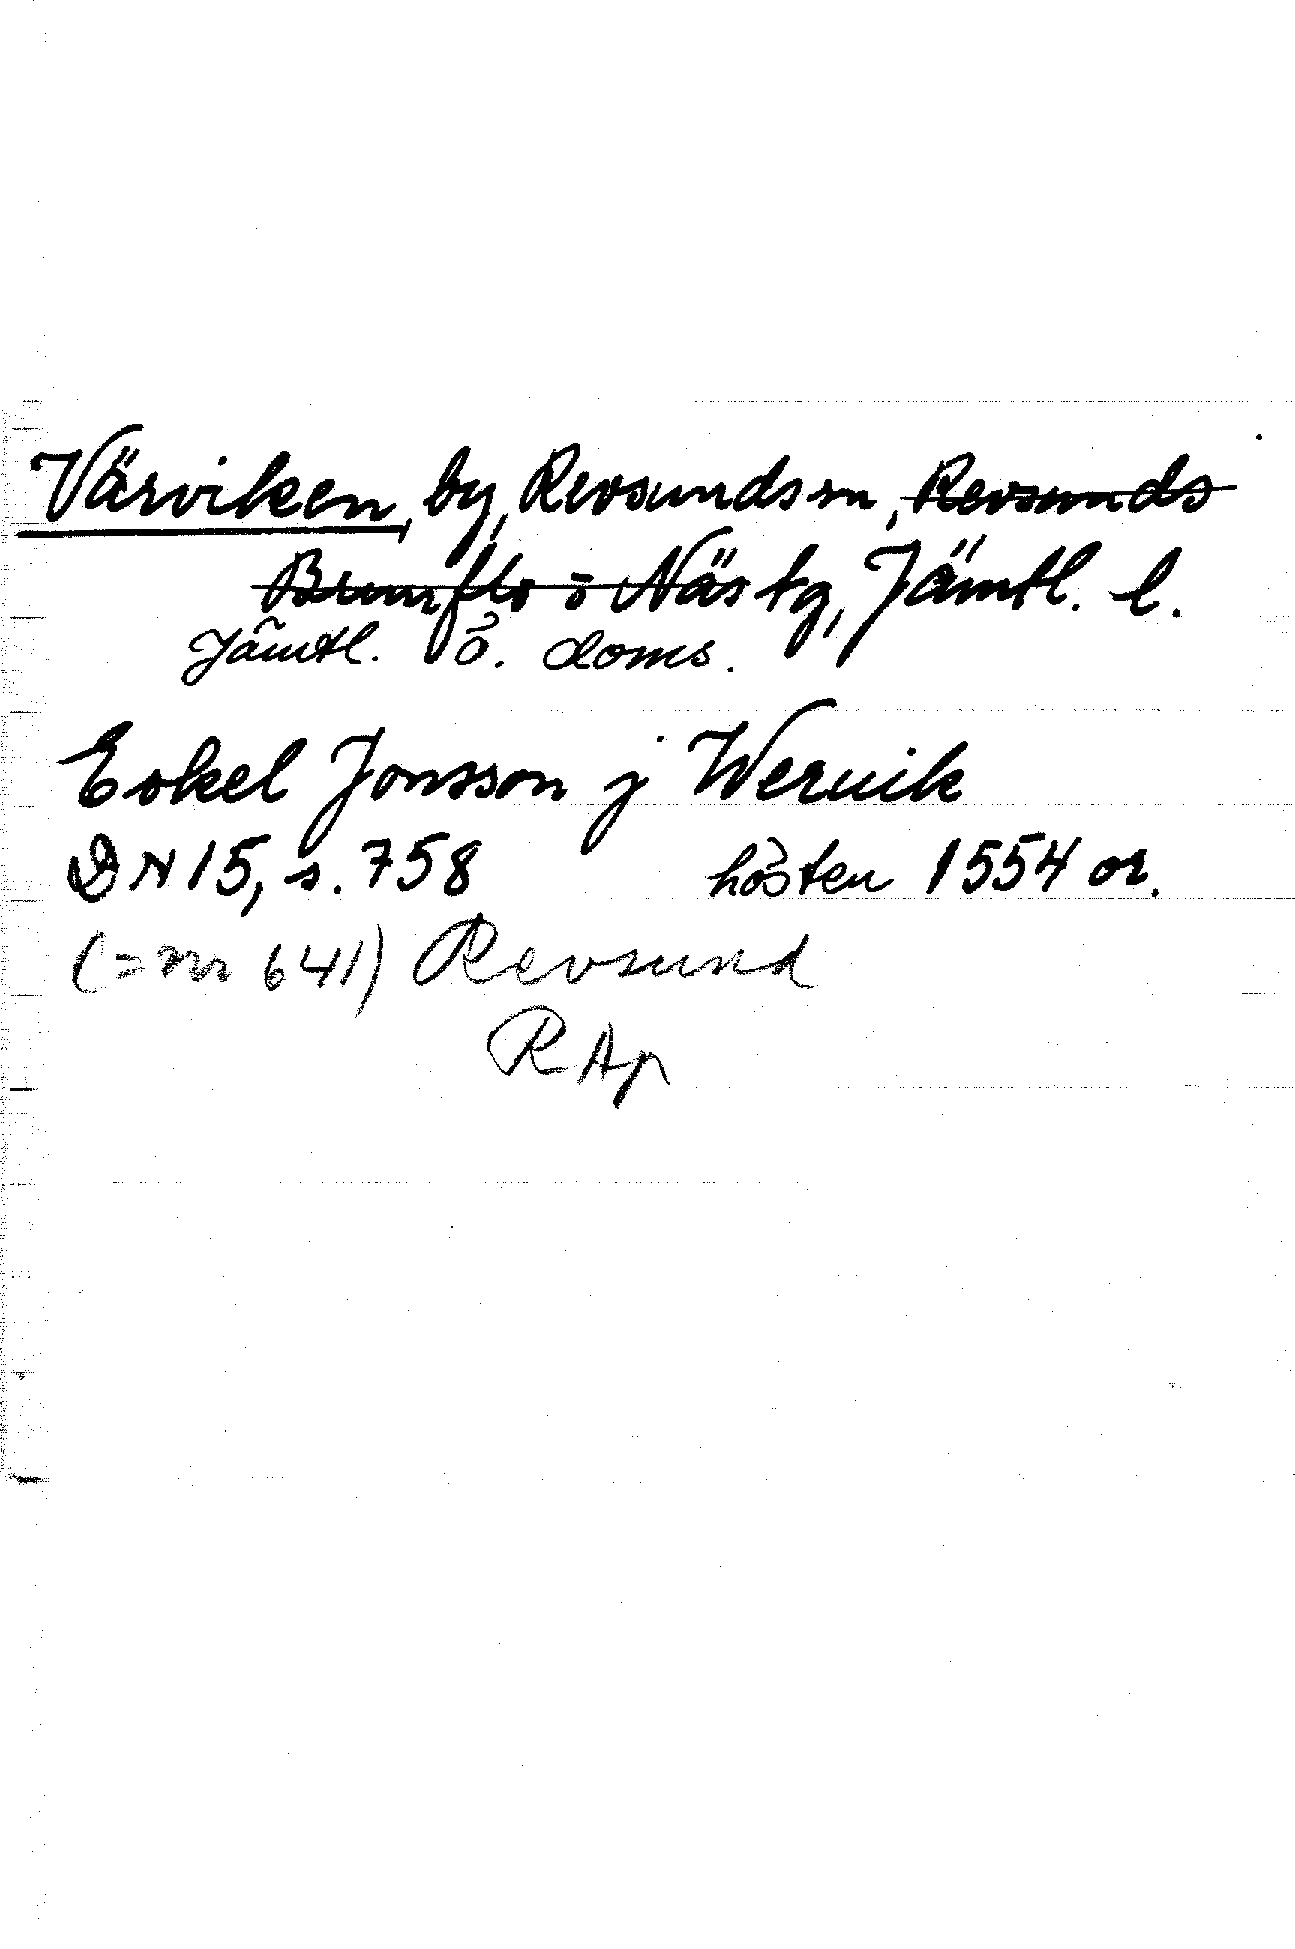 Värviken, by, Revsunds sn, Revsunds
Brunflo o Näs tg, Jämtl. l.
Jämtl. ö. doms.
Eskel Jonsson j Wernik
DN 15, s. 758 hösten 1554 or.
(= nr 641) Revsund
RAp